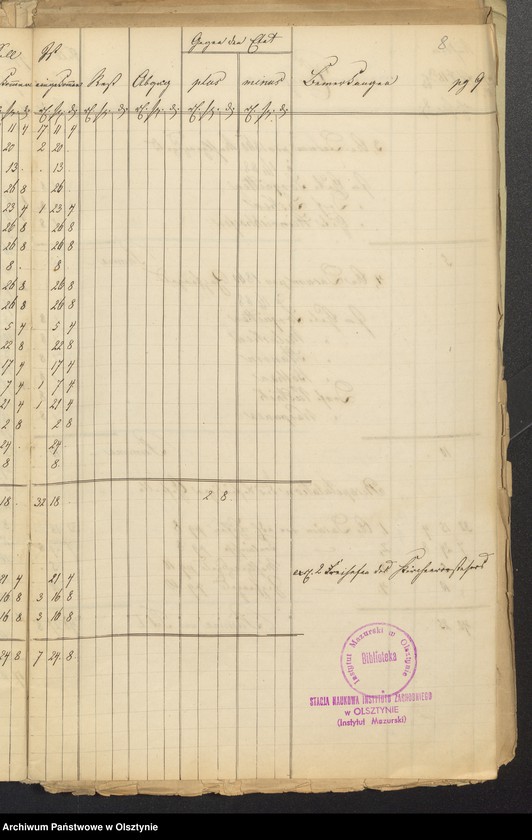 Gegen den Etat 8
Soll Ist
einkommen eingekommen Rest Abgang plus minus Bemerkungen pg 9
11 4 17 11 4
20 2 20
13 . 13 .
26 8 26 .
23 4 1 23 4
26 8 26 8
26 8 26 8
8 . 8
26 8 26 8
26 8 26 8
5 4 5 4
22 8 22 8
17 4 17 4
7 4 1 7 4
21 4 1 21 4
2 8 2 8
24 . 24 .
8 8
18 . 32 18 . 2 8
excl. 2 Freihufen des Kirchenvorstehers
21 4 21 4
16 8 3 16 8
16 8 3 16 8
24 8 7 24 8
Instytut Mazurski w Olsztynie
Biblioteka
STACJA NAUKOWA INSTYTUTU ZACHODNIEGO
w OLSZTYNIE
(Instytut Mazurski)
Archiwum Państwowe w Olsztynie